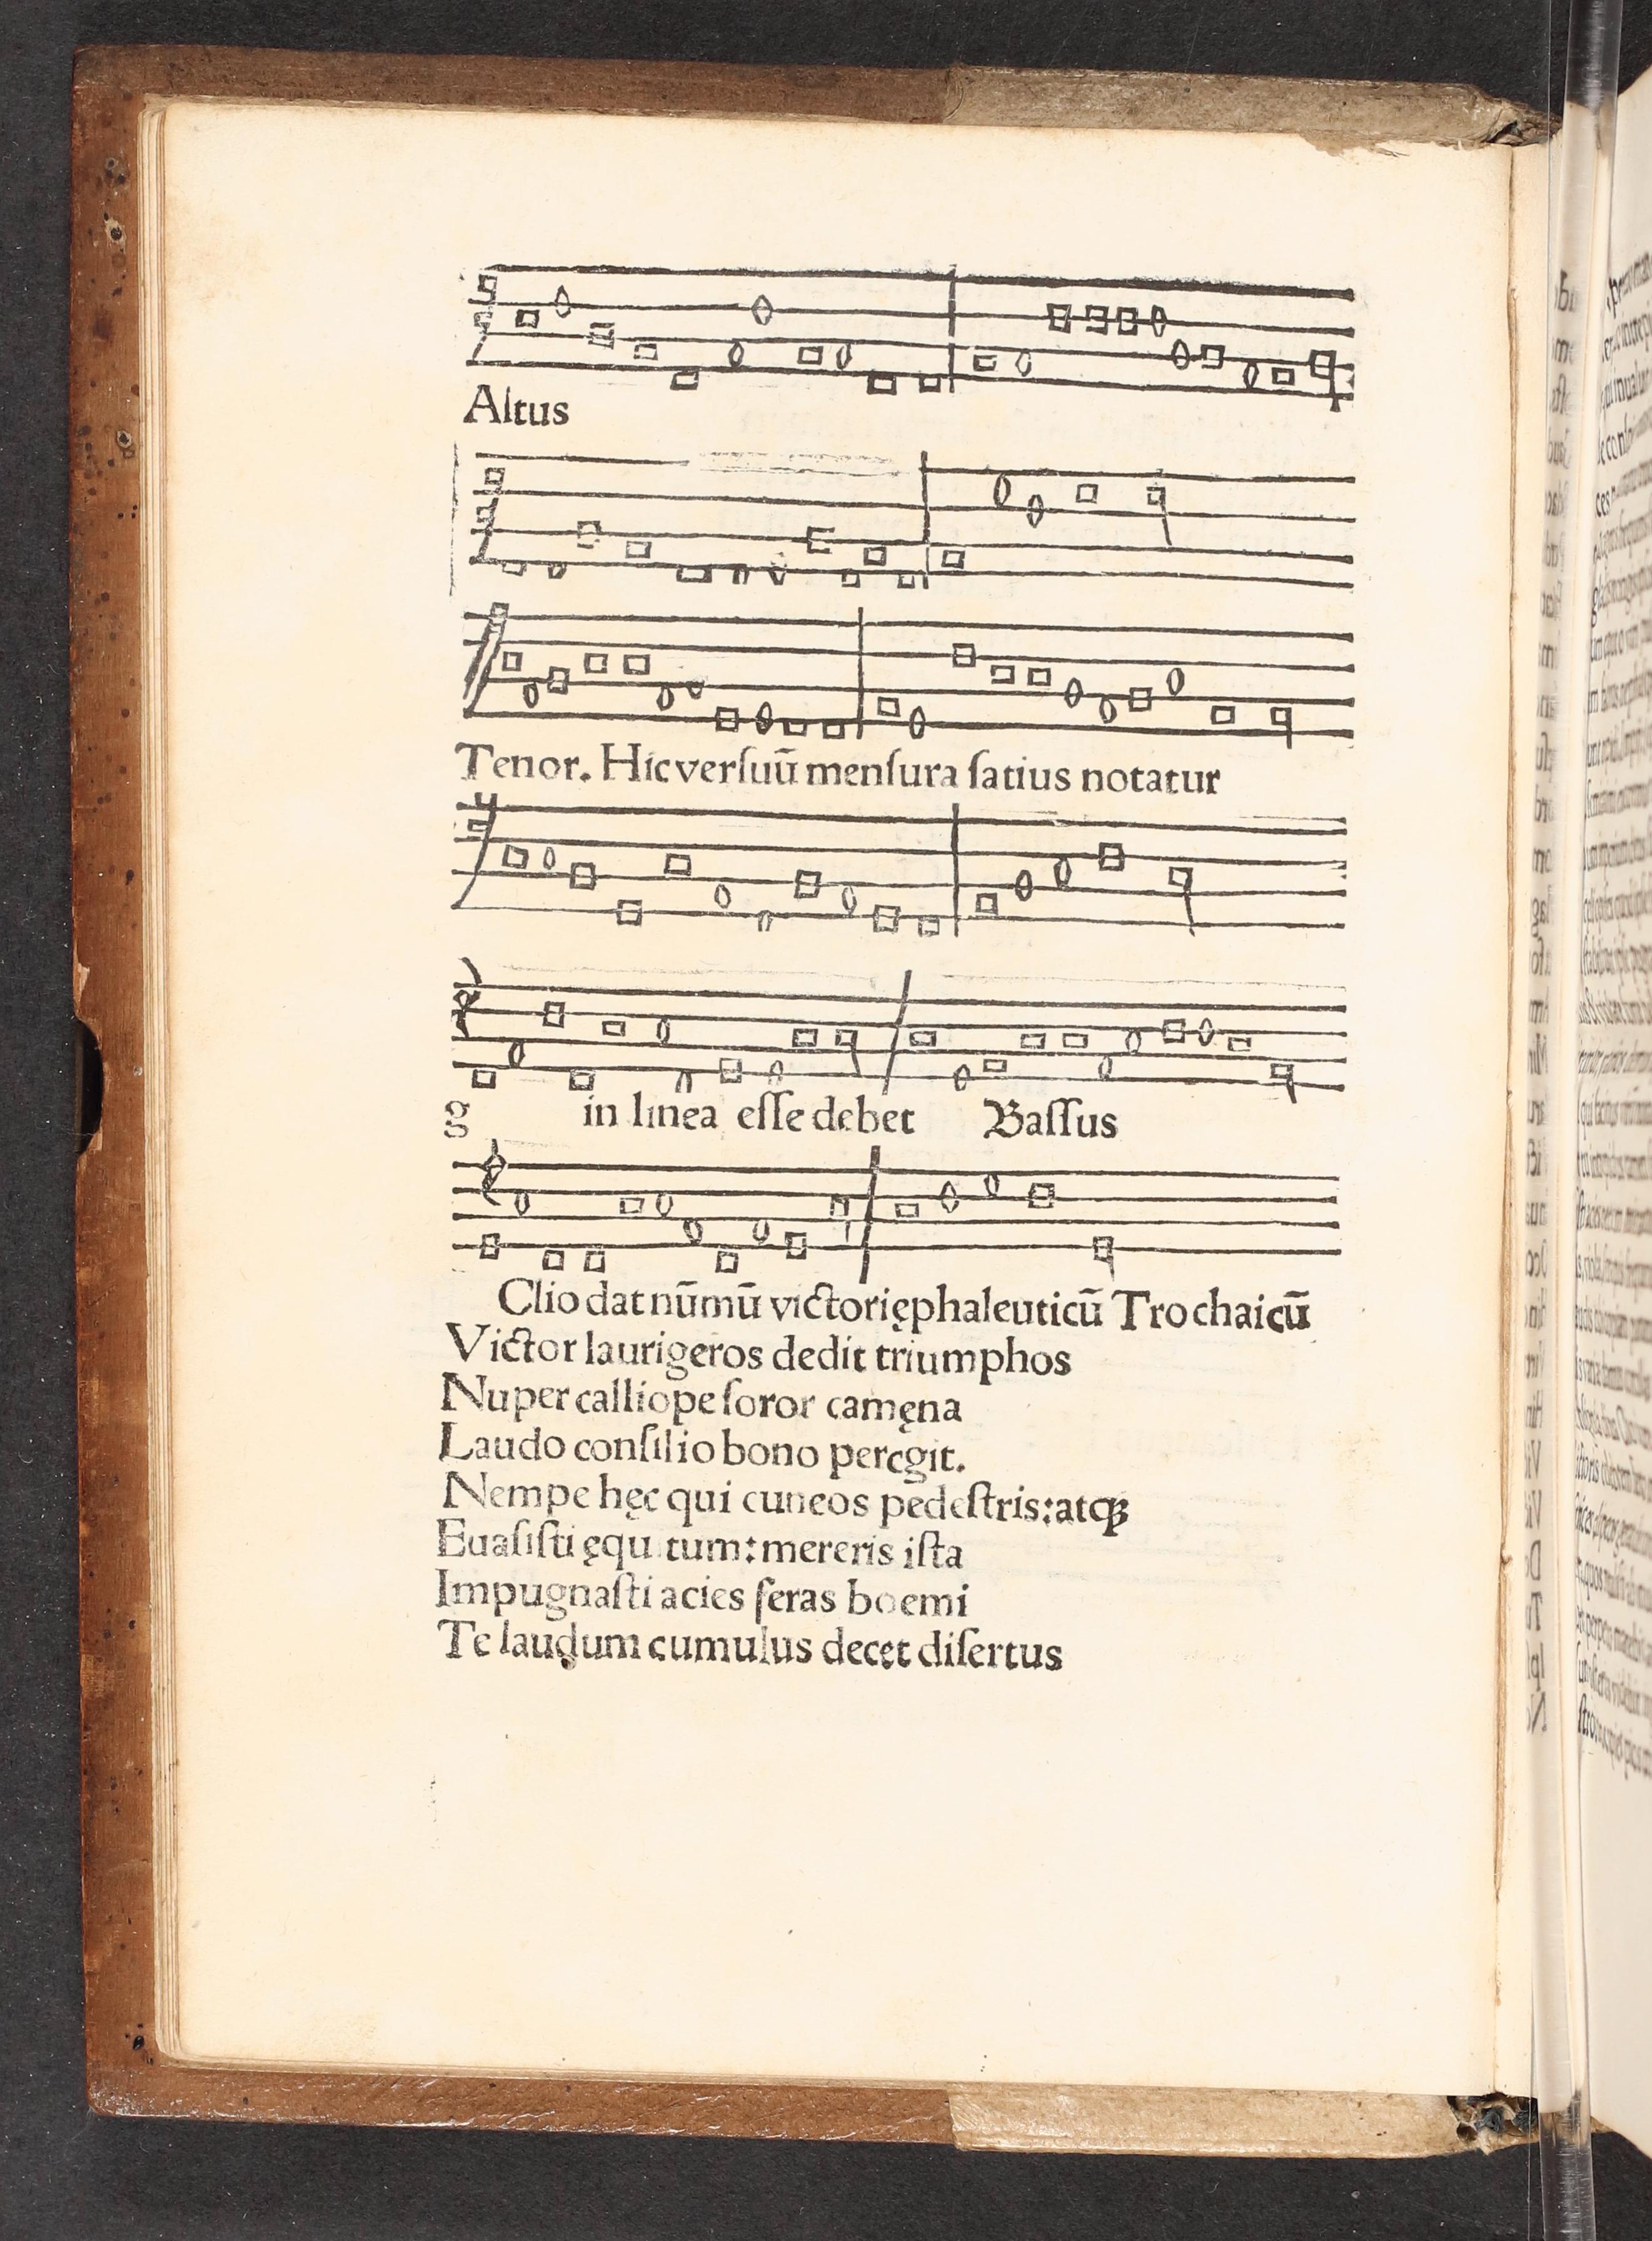 Altus
Tenor. Hic verſuū menſura ſatius notatur
g in linea eſſe debet Baſſus
Clio dat nūmū victorięphaleuticū Trochaicū
Victor laurigeros dedit triumphos
Nuper calliope ſoror camęna
Laudo conſilio bono peregit.
Nempe hęc qui cuneos pedeſtris: atqꝫ
Euaſiſti ęquitum: mereris iſta
Impugnaſti acies feras boemi
Te laudum cumulus decet diſertus